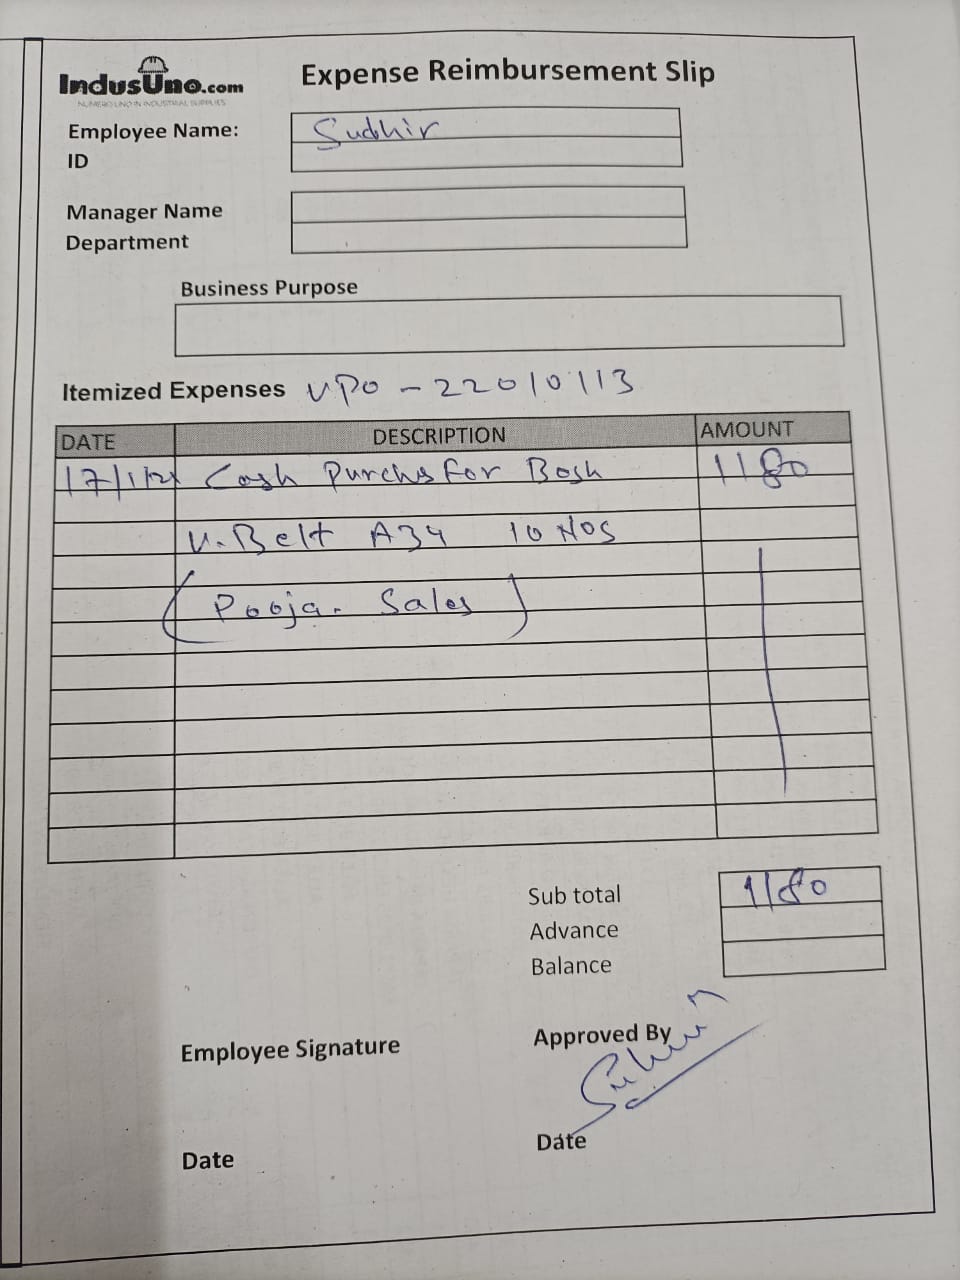 IndusUno.com
NUMERO UNO IN INDUSTRIAL SUPPLIES
Expense Reimbursement Slip
Employee Name: Sudhir
ID
Manager Name
Department
Business Purpose
Itemized Expenses VPO - 22010113
DATE DESCRIPTION AMOUNT
Cash Purchs for Bosh 1180
V. Belt A34 10 NOS
(Pooja. Sales)
Sub total 1180
Advance
Balance
Employee Signature
Approved By
Date
Date